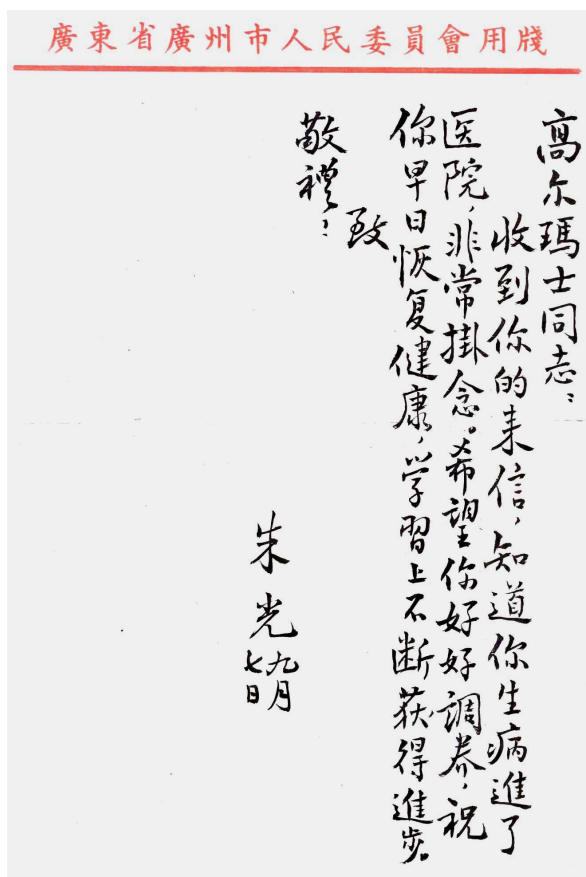 廣東省廣州市人民委員會用牋
高尔瑪士同志：
收到你的来信，知道你生病進了
医院，非常掛念。希望你好好調养，祝
你早日恢复健康，学習上不断获得進步。
致
敬禮！
朱光
九月
七日